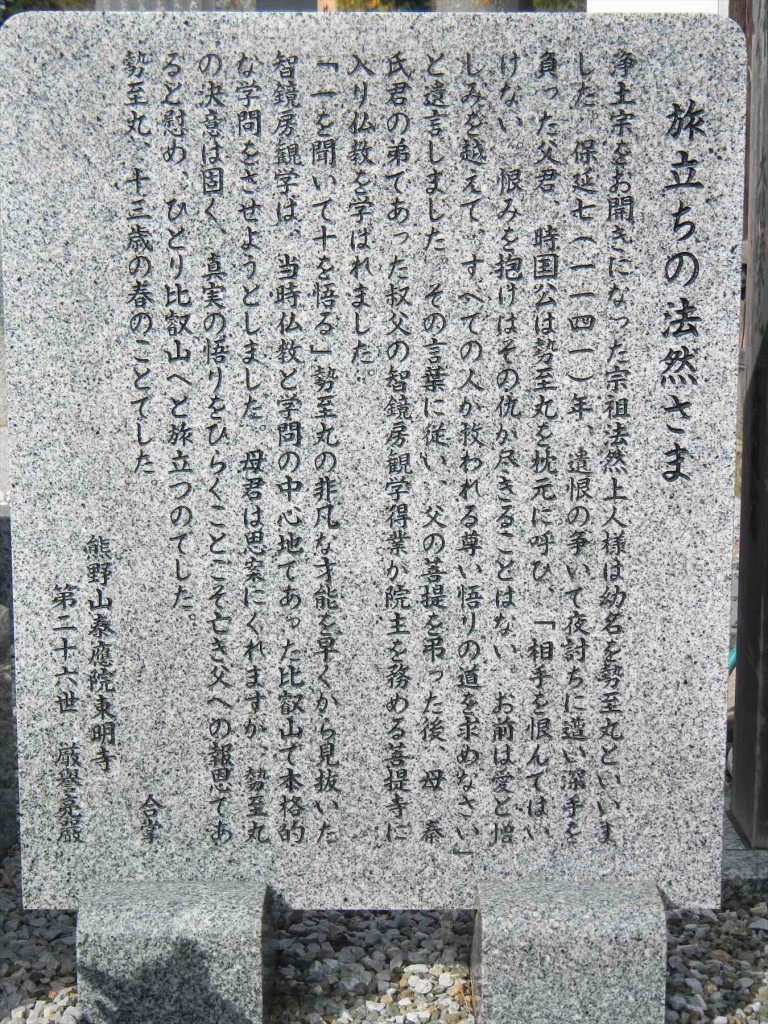 旅立ちの法然さま
浄土宗をお開きになった宗祖法然上人様は幼名を勢至丸といいま
した。保延七（一一四一）年、遺恨の争いで夜討ちに遭い深手を
負った父君、時国公は勢至丸を枕元に呼び、「相手を恨んではい
けない。恨みを抱けばその仇が尽きることはない。お前は愛と憎
しみを越えて、すべての人が救われる尊い悟りの道を求めなさい」
と遺言しました。その言葉に従い、父の菩提を弔った後、母　秦
氏君の弟であった叔父の智鏡房観学得業が院主を務める菩提寺に
入り仏教を学ばれました。
「一を聞いて十を悟る」勢至丸の非凡な才能を早くから見抜いた
智鏡房観学は、当時仏教と学問の中心地であった比叡山で本格的
な学問をさせようとしました。母君は思案にくれますが、勢至丸
の決意は固く、真実の悟りをひらくことこそ亡き父への報恩であ
ると慰め、ひとり比叡山へと旅立つのでした。
勢至丸、十三歳の春のことでした
合掌
熊野山泰應院東明寺
第二十六世　厳譽亮厳